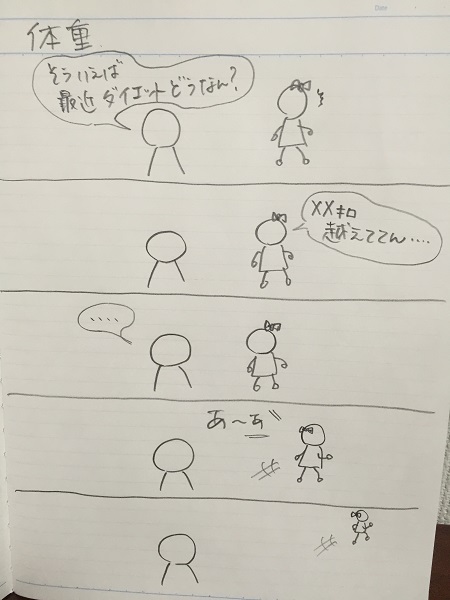 体重
そういえば
最近ダイエットどうなん?
XXキロ
越えててん....
....
あ〜あ
Date